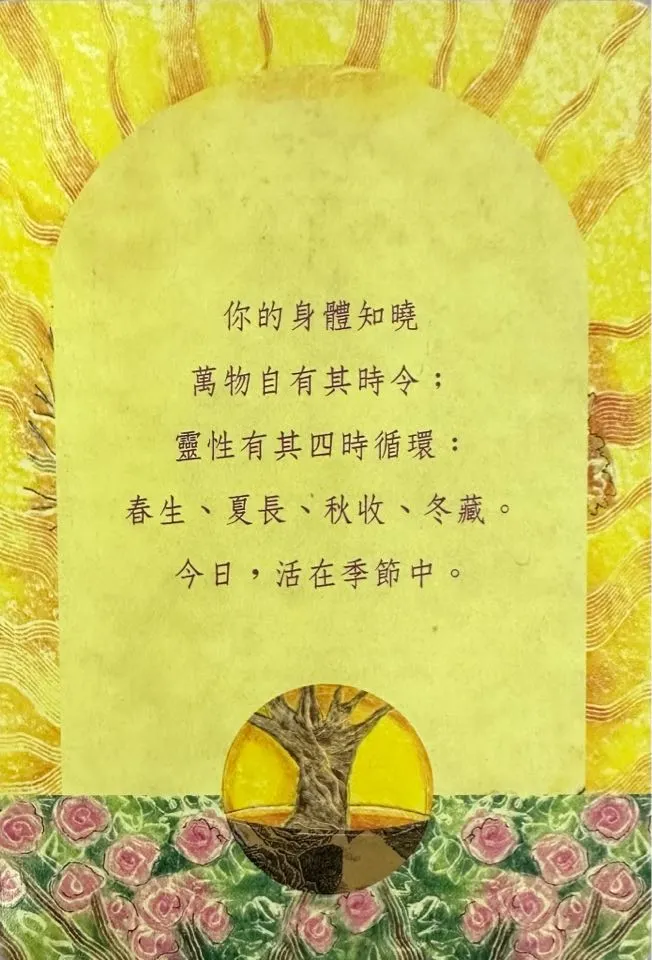 你的身體知曉
萬物自有其時令；
靈性有其四時循環：
春生、夏長、秋收、冬藏。
今日，活在季節中。